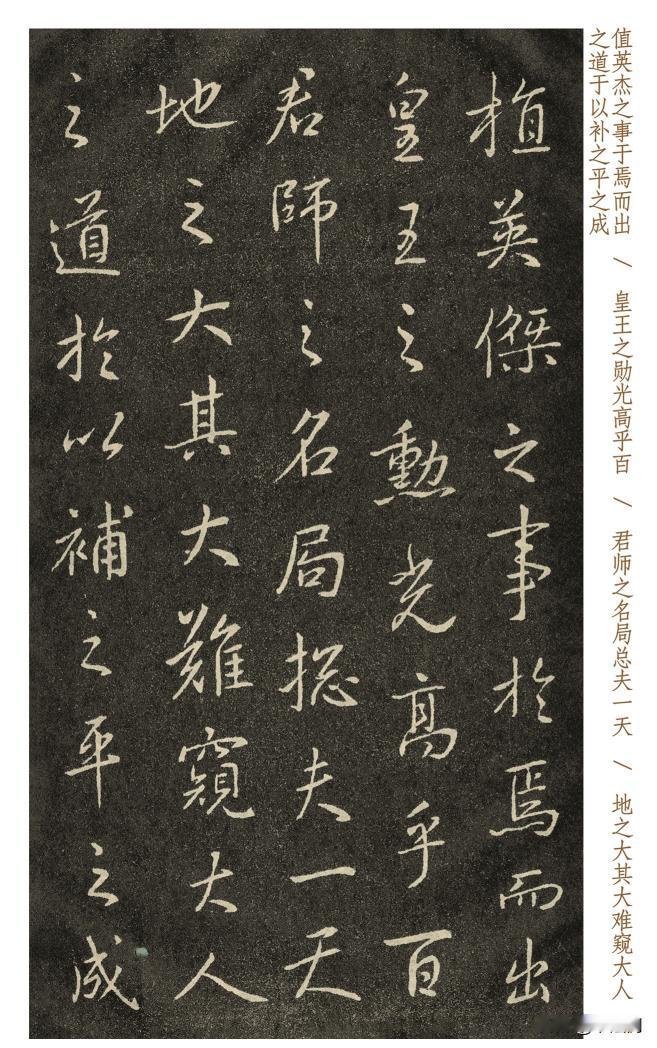 植英傑之事於焉而出
皇王之勳光高乎百
君師之名局捴夫一天
地之大其大難窺大人
之道於以補之平之成
值英杰之事于焉而出 / 皇王之勋光高乎百 / 君师之名局总夫一天 / 地之大其大难窥大人
之道于以补之平之成